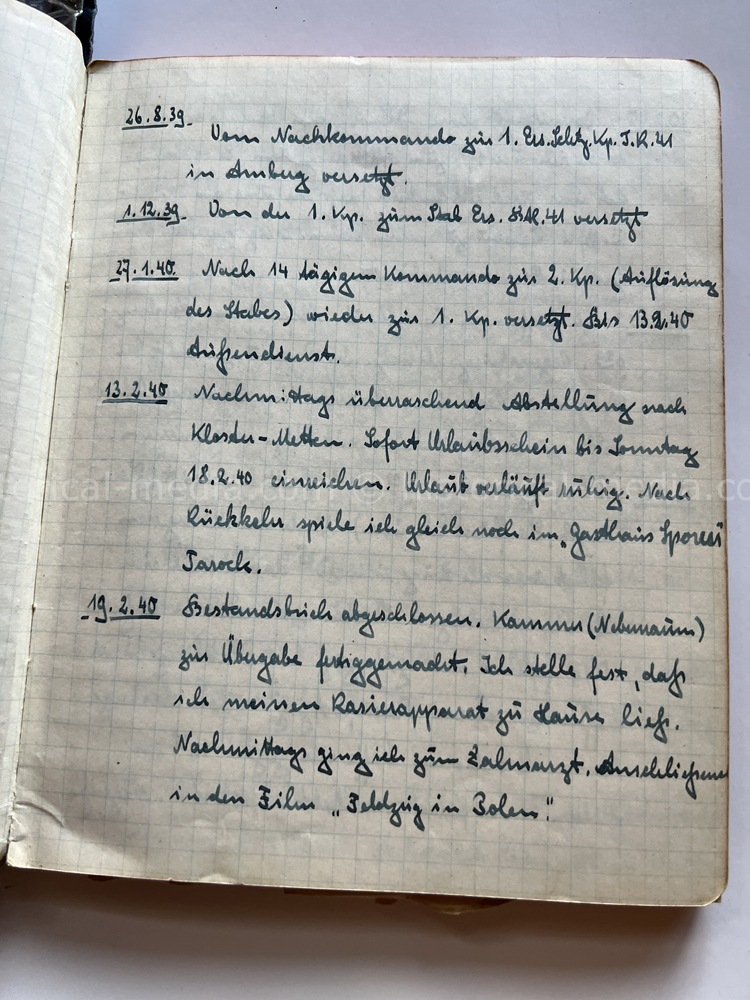 26.8.39.
Vom Nachkommando zur 1. Ers. Schtz. Kp. J.R. 41
in Amberg versetzt.
1.12.39. Von der 1. Kp. zum Stab Ers. Btl. 41 versetzt
27.1.40. Nach 14 tägigem Kommando zur 2. Kp. (Auflösung
des Stabes) wieder zur 1. Kp. versetzt. Bis 13.2.40
Außendienst.
13.2.40 Nachmittags überraschend Abstellung nach
Kloster-Metten. Sofort Urlaubsschein bis Sonntag
18.2.40 einreichen. Urlaub verläuft ruhig. Nach
Rückkehr spiele ich gleich noch im „Gasthaus
Tarock.
19.2.40 Bestandsbuch abgeschlossen. Kammer (Nebenraum)
zur Übergabe fertiggemacht. Ich stelle fest, daß
ich meinen Rasierapparat zu Hause ließ.
Nachmittags ging ich zum Zahnarzt. Anschließend
in den Film „Feldzug in Polen".